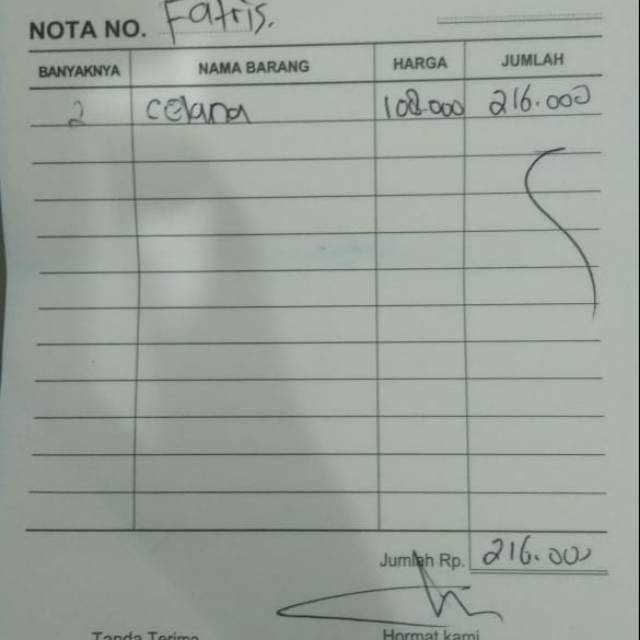 NOTA NO. Fatris.
BANYAKNYA NAMA BARANG HARGA JUMLAH
2 celana 108.000 216.000
Jumlah Rp. 216.000
Tanda Terima Hormat kami